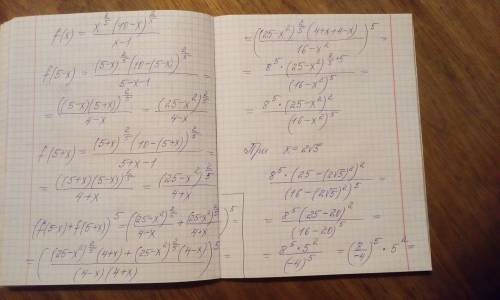 f(x) = x^(2/5) (10-x)^(2/5) / x-1
f(5-x) = (5-x)^(2/5) (10-(5-x))^(2/5) / 5-x-1 =
= ((5-x)(5+x))^(2/5) / 4-x = (25-x²)^(2/5) / 4-x
f(5+x) = (5+x)^(2/5) (10-(5+x))^(2/5) / 5+x-1 =
= ((5+x)(5-x))^(2/5) / 4+x = (25-x²)^(2/5) / 4+x
(f(5-x)+f(5+x))^5 = ((25-x²)^(2/5) / 4-x + (25-x²)^(2/5) / 4+x)^5 =
= ((25-x²)^(2/5) (4+x) + (25-x²)^(2/5) (4-x) / (4-x)(4+x))^5 =
= ((25-x²)^(2/5) (4+x+4-x) / 16-x²)^5 =
= 8^5 · (25-x²)^(2/5·5) / (16-x²)^5 =
= 8^5 · (25-x²)² / (16-x²)^5
При x=2√5
8^5 · (25-(2√5)²)² / (16-(2√5)²)^5 =
= 8^5 (25-20)² / (16-20)^5 =
= 8^5 · 5² / (-4)^5 = (8/-4)^5 · 5² =